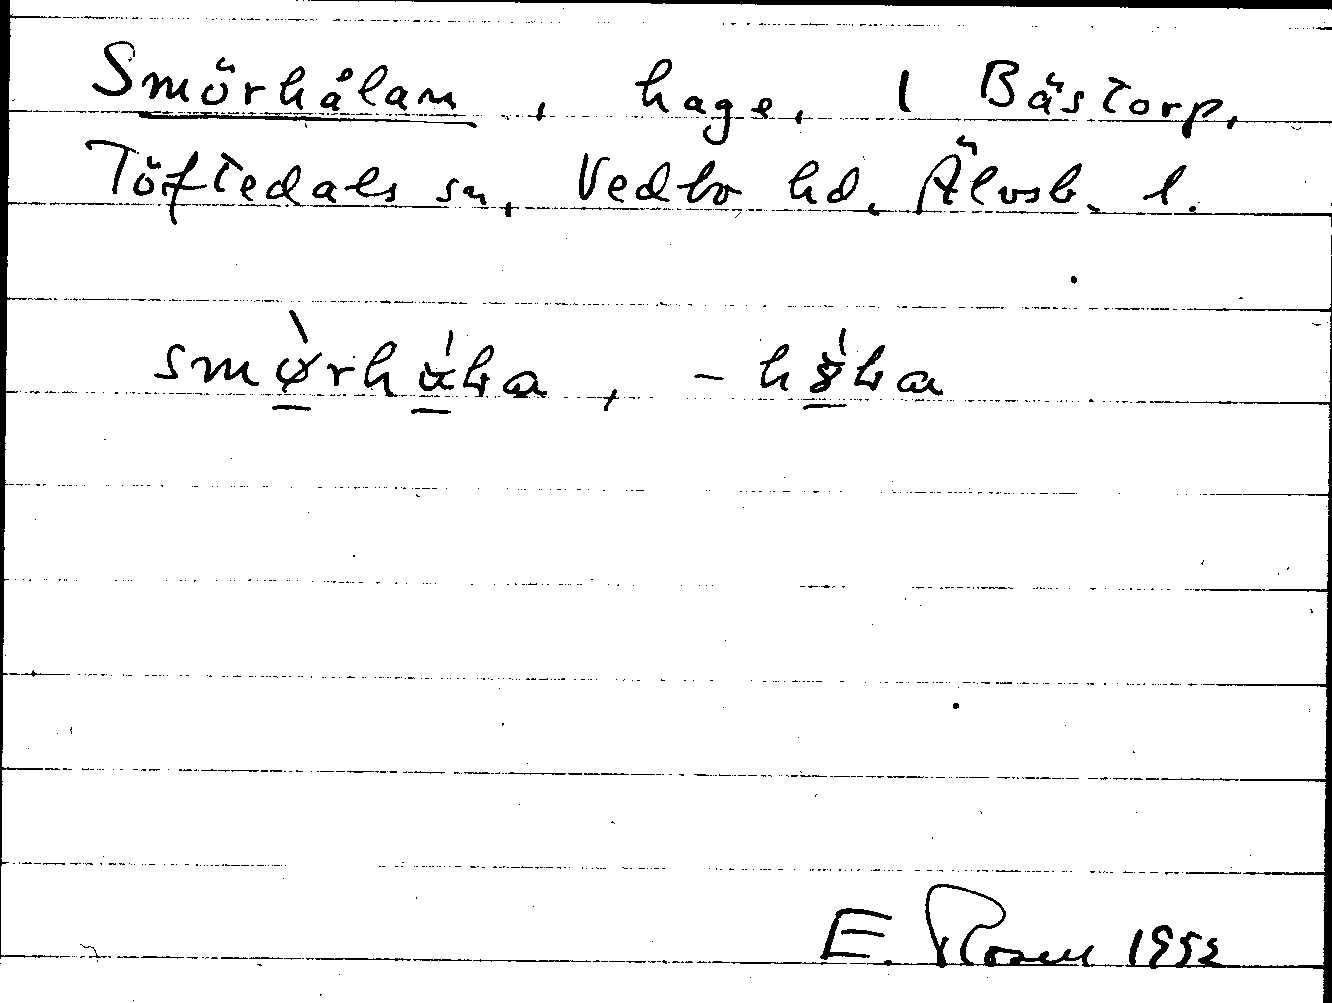 Smörhålan, hage, 1 Bästorp,
Töftedals sn, Vedbo hd, Älvsb. l.
E. Rosén 1952